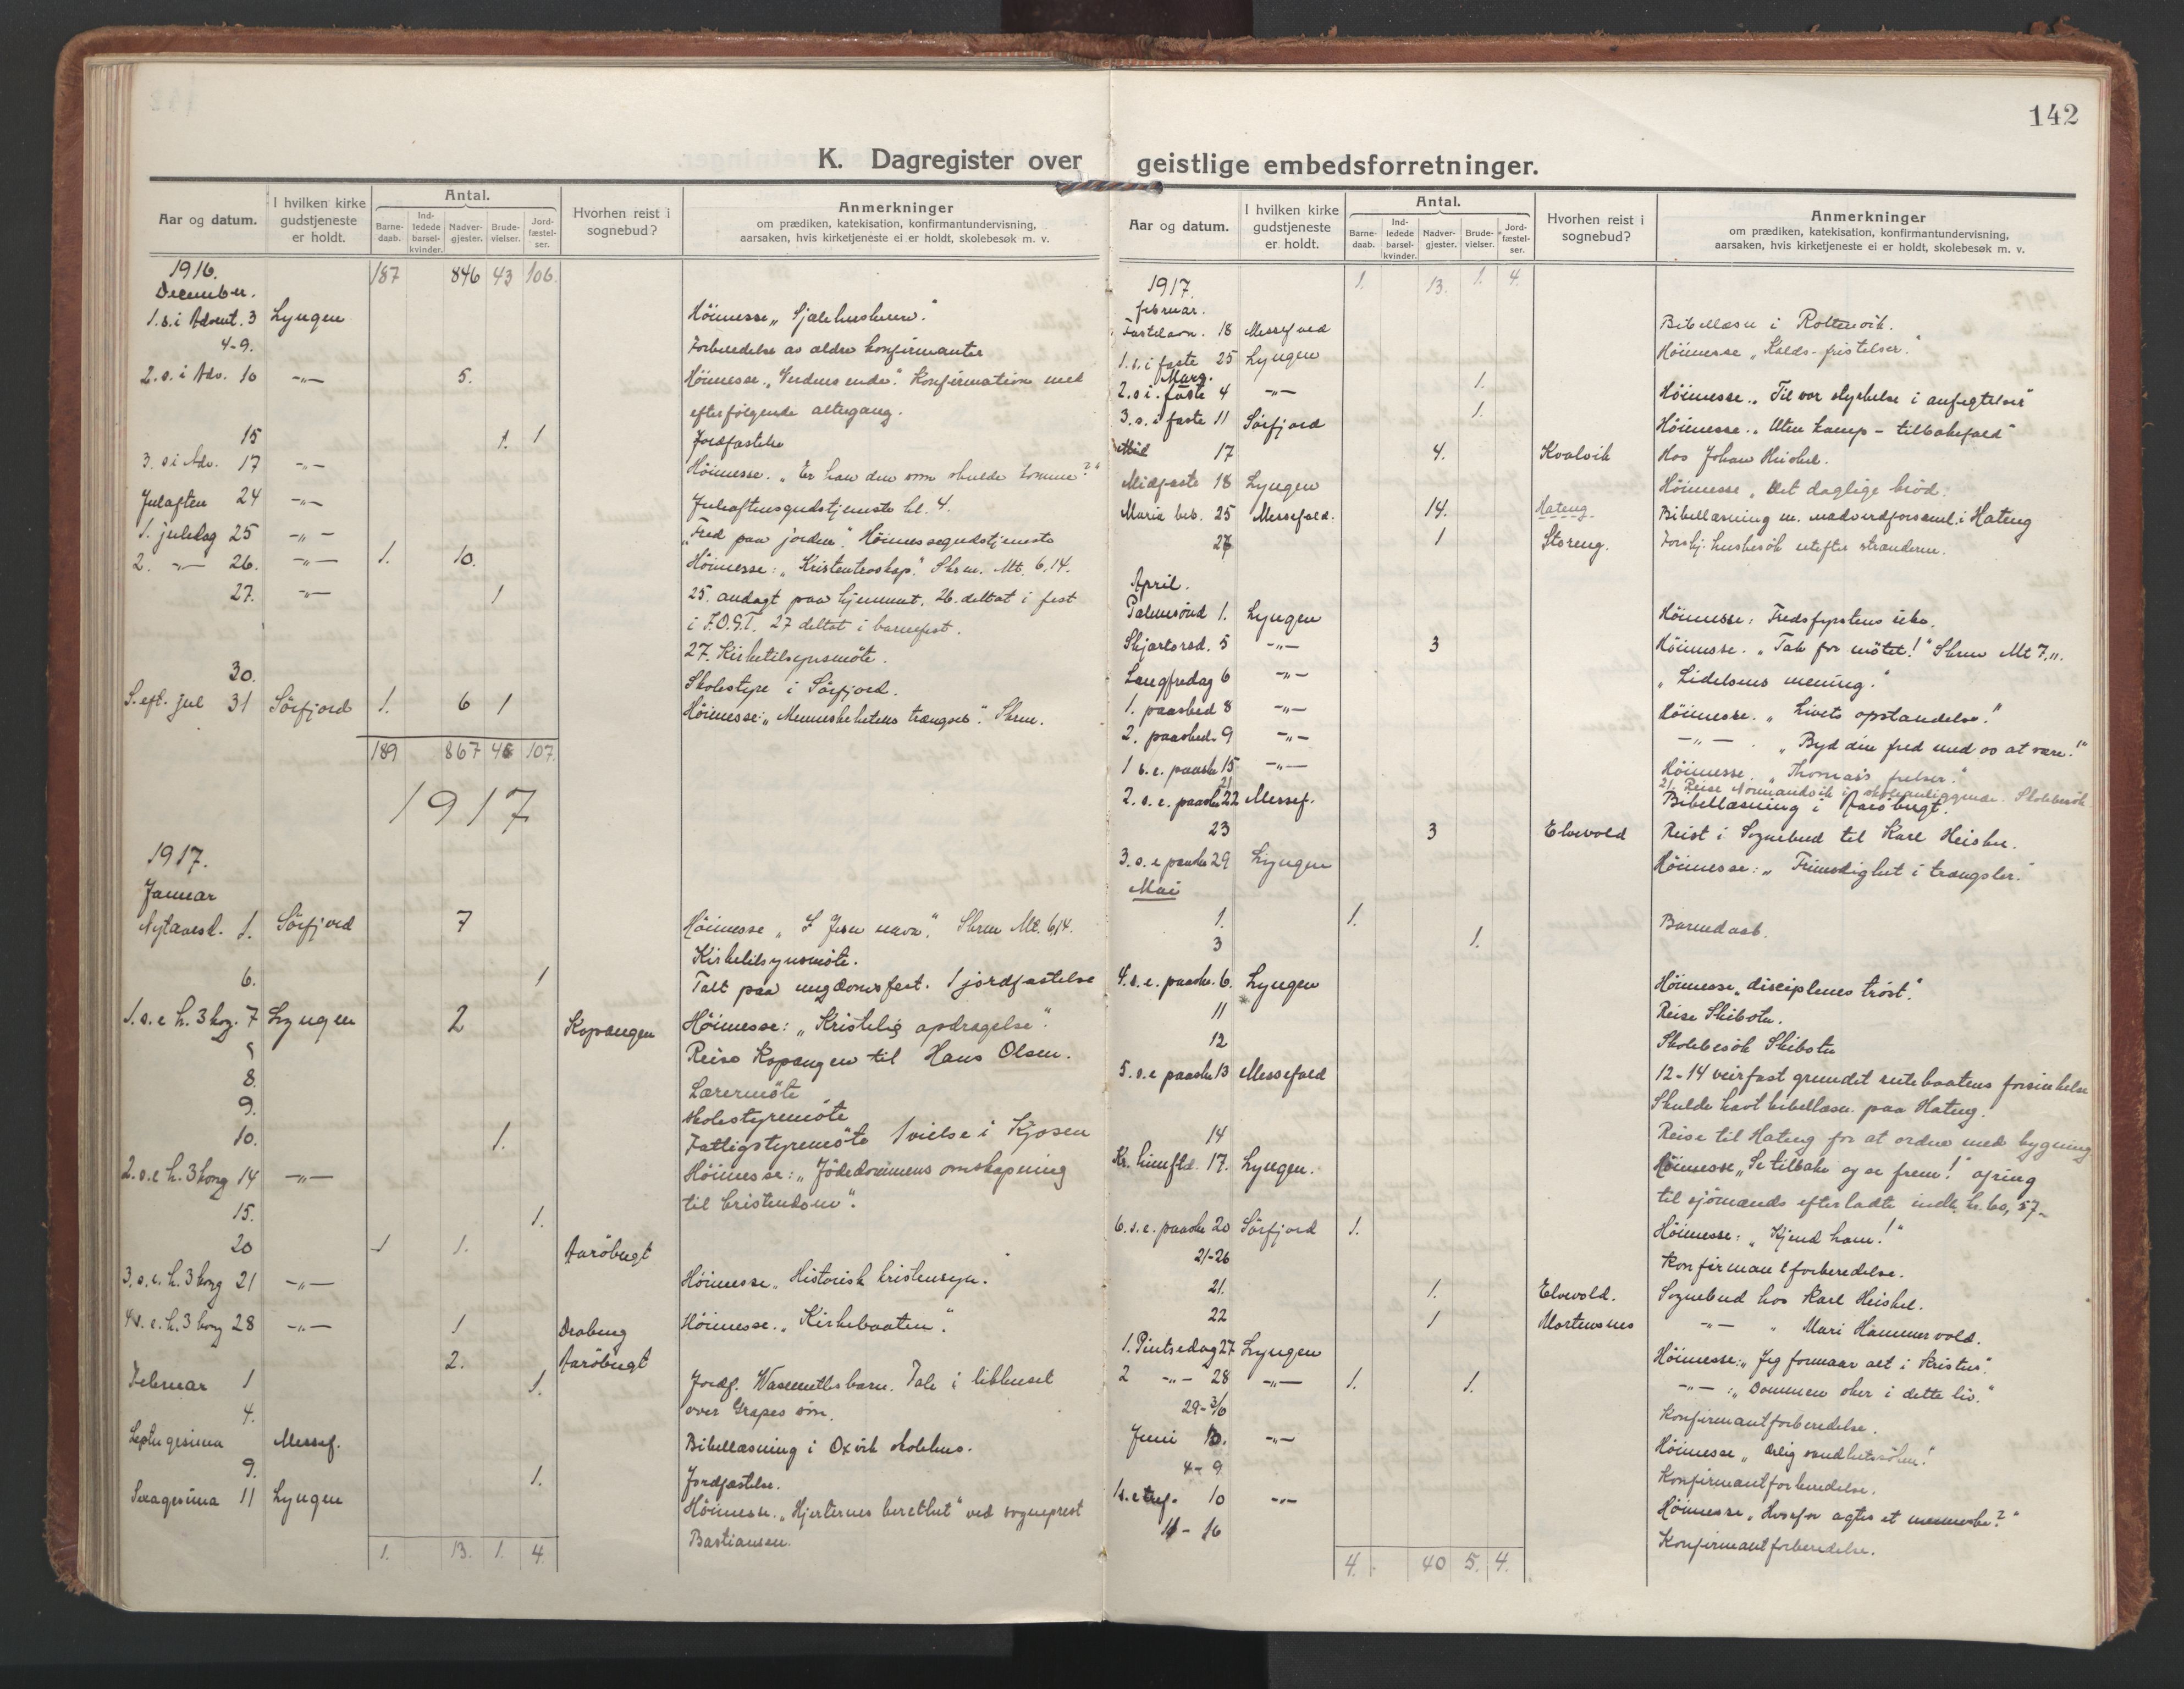 142
K. Dagregister over geistlige embedsforretninger.
Aar og datum.
I hvilken kirke gudstjeneste er holdt.
Antal.
Barne-daab.
Ind-ledede barsel-kvinder.
Nadver-gjester.
Brude-vielser.
Jord-fæstel-ser.
Hvorhen reist i sognebud?
Anmerkninger
om prædiken, katekisation, konfirmantundervisning,
aarsaken, hvis kirketjeneste ei er holdt, skolebesøk m. v.
1916. 187 846 43 106
December.
1. s. i Advent. 3 Lyngen Höimesse „
4-9. Forberedelse av ældre konfirmanter
2. s. i Adv. 10 -"- 5. Höimesse. „Verdens ende." Konfirmation med
efterfölgende altergang.
15 1. 1 Jordfæstelse
3. s i Adv. 17 -"- Höimesse. „Er han den som skulde komme?"
Julaften 24 -"- Juleaftensgudstjeneste kl. 4.
1. juledag 25 -"- „Fred paa jorden". Höimessegudstjeneste
2. -"- 26. -"- 1. 10. Höimesse: „Kristentroskap." Skrm. Mt. 6,14.
27. -"- 1 25. andagt paa hjemmet. 26. deltat i fest
i I.O.G.T. 27 deltat i barnefest.
27. Kirketilsynsmöte.
30. Skolestyre i Sörfjord.
S. eft. jul 31 Sörfjord 1. 6 1 Höimesse: „Menneskehetens trængsel". Skrm.
189 867 46 107
1917
1917.
Januar
Nytaarsd. 1. Sörfjord 7 Höimesse „I Jesu navn." Skrm Mt. 6,14.
Kirketilsynsmöte.
6. 1 Talt paa ungdomsfest. 1 jordfæstelse
1. s. e h. 3 kog. 7 Lyngen 2 Kopangen Höimesse: „Kristelig opdragelse".
Reise Kopangen til Hans Olsen.
8. Lærermöte
9. Skolestyremöte
10. 1. Fattigstyremöte 1 vielse i Kjosen
2. s. e h. 3 kong 14 -"- Höimesse: „Jödedommens omskapning
til kristendom".
15. 1.
20 1 1. Aaröbugt
3. s. e. h. 3 kong 21 -"- Höimesse „Historisk kristensyn.
4 s. e. h. 3 kong 28 -"- 1 Drabeng Höimesse. „Kirkebaaten".
2. Aaröbugt
Februar 1 1. Jordf. Wasmuths barn. Tale i likhuset
4. over Grapes sön.
Septugesima Messef. Bibellæsning i Oxvik skolehus.
9. 1. Jordfæstelse.
Sexagesima 11 Lyngen Höimesse. „Hjerternes " ved sogneprest
Bastiansen.
1. 13. 1. 4.
Aar og datum.
I hvilken kirke gudstjeneste er holdt.
Antal.
Barne-daab.
Ind-ledede barsel-kvinder.
Nadver-gjester.
Brude-vielser.
Jord-fæstel-ser.
Hvorhen reist i sognebud?
Anmerkninger
om prædiken, katekisation, konfirmantundervisning,
aarsaken, hvis kirketjeneste ei er holdt, skolebesøk m. v.
1917. 1. 13. 1. 4.
februar.
Fastelavn. 18 Messefald Bibellæsn i Rottenvik.
1. s. i faste 25 Lyngen Höimesse „Kalds-fristelser."
Mars.
2. s i. faste 4 -"- 1. Höimesse. „Til vor styrkelse i anfegtelser"
3. s. i faste 11 Sörfjord 1. Höimesse. „Uten kamp - tilbakefald"
17 4. Kvalvik Hos Johan Heiskel.
Midfaste 18 Lyngen Höimesse „Det daglige bröd.
Maria beb. 25 Messefald. 14. Hateng Bibellæsning m. nadverdforsaml. i Hateng
27 1 Storeng. Forskj. husbesök utefter strandene.
April.
Palmesönd 1. Lyngen Höimesse: Fredsfyrstens uke.
Skjærtorsd. 5 -"- 3 Höimesse. „Tak for mötet!" Skrm Mt 7,11.
Langfredag 6 -"- „Lidelsens mening."
1. paasked 8 -"- Höimesse. „Livets opstandelse."
2. paasked. 9 -"- -"- . „Byd din fred med os at være!"
1 s. e. paaske 15 -"- Höimesse. „Thomas's frelser."
21 21. Reise Normandvik i skoleanliggende. Skolebesök
2. s. e. paaske 22 Messef. Bibellæsning i Aaröbugt.
23 3 Elvevold Reist i Sognebud til Karl Heiskel.
3. s. e paaske 29 Lyngen Höimesse: „Frimodighet i trængsler."
Mai
1. 1. Barnedaab.
3 1.
4. s. e. paaske. 6. Lyngen Höimesse „disciplenes tröst".
11 Reise Skibotn.
12 Skolebesök Skibotn
5. s. e paaske 13 Messefald 12-14 veirfast grundet rutebaatens forsinkelse
Skulde havt bibellæsn. paa Hateng.
14 Reise til Hateng for at ordne med bygning
Kr. himfld. 17. Lyngen. Höimesse „Se tilbake og se frem!" ofring
til sjömænds efterladte indk. kr. 60,57-
6. s. e. paaske 20 Sörfjord 1. Höimesse: „Kjend ham!"
21-26 Konfirmantforberedelse.
21. 1. Elvevold. Sognebud hos Karl Heiskel.
22 1 Mortensnes -"- " Mari Hammervold.
1. Pintsedag 27 Lyngen Höimesse: „Jeg formaar alt i Kristus".
2 -"- 28 -"- 1. 1. -"- : „Dommen sker i dette liv."
29-3/6 Konfirmantforberedelse.
Juni 3. -"- Höimesse „Ærlig sandhetssöken!
4-9 Konfirmantforberedelse.
1 s. e tref. 10 -"- Höimesse „Hvorfor agtes et menneske?"
11-16 Konfirmantforberedelse.
4. 40 5. 4.